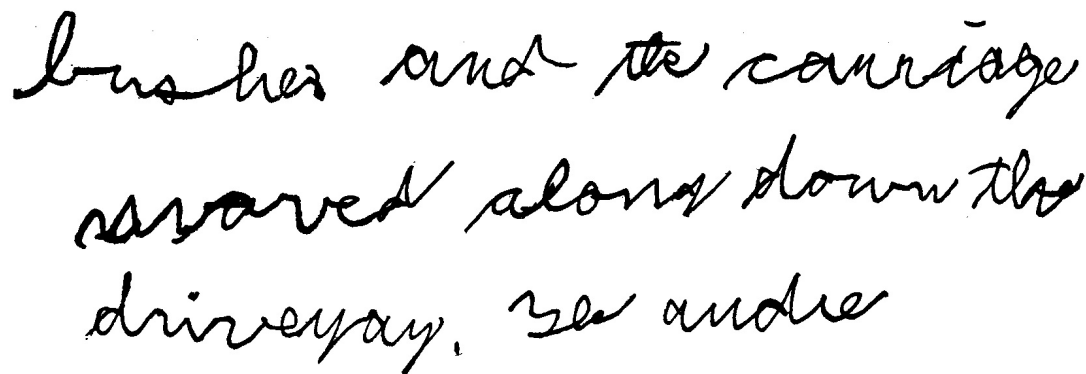 bushes and the carriage
moved along down the
driveyay. Se andre